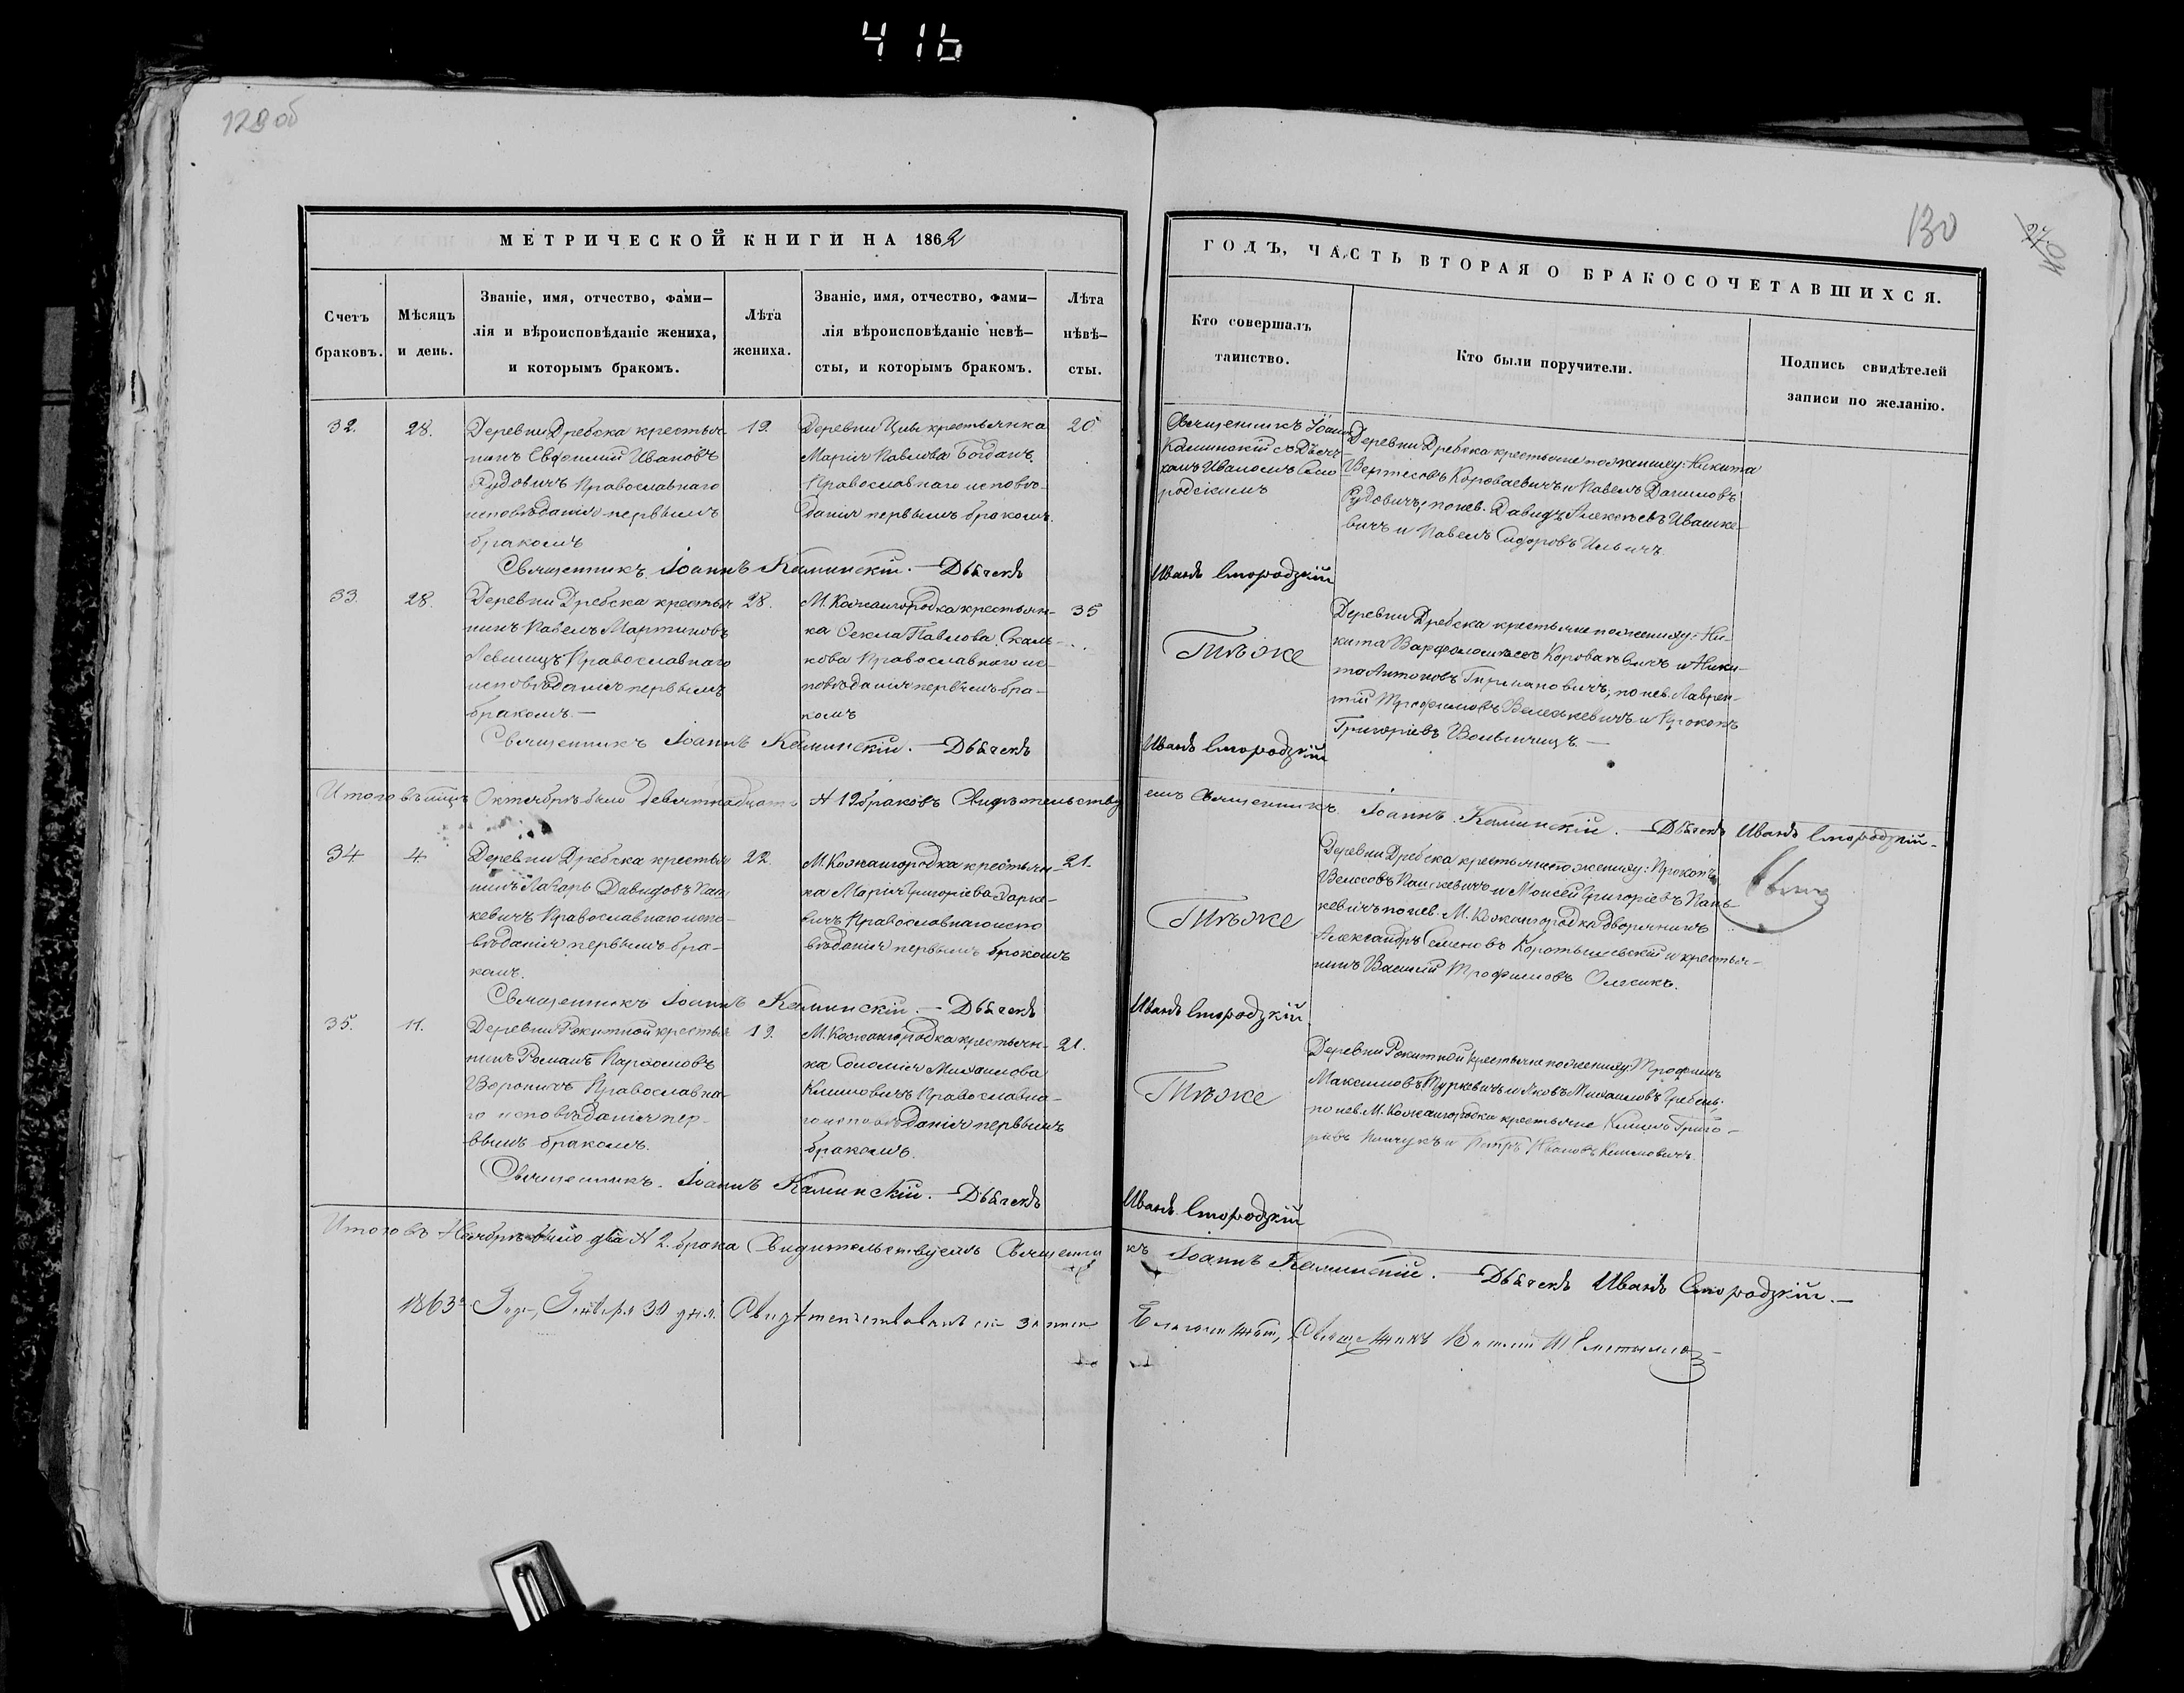 416
129 об
130
МЕТРИЧЕСКОЙ КНИГИ НА 1862
ГОДЪ, ЧАСТЬ ВТОРАЯ О БРАКОСОЧЕТАВШИХСЯ.
Счетъ
браковъ.
Мѣсяцъ
и день.
Званіе, имя, отчество, фами–
лія и вѣроисповѣданіе жениха,
и которымъ бракомъ.
Лѣта
жениха.
Званіе, имя, отчество, фами–
лія вѣроисповѣданіе невѣ–
сты, и которымъ бракомъ.
Лѣта
нѣвѣ–
сты.
Кто совершалъ
таинство.
Кто были поручители.
Подпись свидѣтелей
записи по желанію.
32.
28.
Деревни Дребска крестья-
нинъ Евфимій Ивановъ
Рудовичъ Православнаго
исповѣданія первымъ
бракомъ
19.
Деревни Цны крестьянка
Марія Павлова Богданъ
Православнаго исповѣ-
данія первымъ бракомъ.
20
Священникъ Іоаннъ
Каминскій съ Дьяч-
комъ Иваномъ Смо
родскимъ
Деревни Дребска крестьяне по жениху: Никита
Короваевичъ и Павелъ Даниловъ
Рудовичъ; по нев. Давидъ Алексѣевъ Ивашке-
вичъ и Павелъ Сидоровъ Ильичъ.
Священникъ Іоаннъ Каминскій. — Дьячекъ Иванъ Смородзкій
33.
28.
Деревни Дребска крестья-
нинъ Павелъ Мартиновъ
Левшицъ Православнаго
исповѣданія первымъ
бракомъ. —
28.
М. Кожангородка крестьян-
ка Текла Павлова
Православнаго ис-
повѣданія первымъ бра-
комъ
35
Тѣже
Деревни Дребска крестьяне по жениху: Ни-
кита Варфоломѣевъ Короваевичъ и Ники-
та Антоновъ Гирмановичъ, по нев. Лаврен-
тій Трофимовъ Велесъкевичъ и Прокопъ
Григоріевъ Вольничицъ. —
Священникъ Іоаннъ Каминскій. — Дьячекъ Иванъ Смородзкій
Итого въ мцѣ Октябрѣ было девятнадцать № 19 браковъ Свидѣтельству емъ Священникъ Іоаннъ Каминскій. — Дьячекъ Иванъ Смородзкій. —
34
4
Деревни Дребска крестья-
нинъ Захарь Давидовъ Паш
кевичъ Православнаго испо-
вѣданія первымъ бра-
комъ.
22.
М. Кожангородка крестьян-
ка Марія Григоріева Харке-
вичъ Православнаго испо
вѣданія первымъ бракомъ
21.
Тѣже
Деревни Дребска крестьяне по жениху: Прокопъ
Велесовъ Пашкевичъ и Моисей Григоріевъ Пань-
кевичъ по нев. М. Кожангородка Дворянинъ
Александръ Семеновъ Коротышевскій и крестья-
нинъ Василій Трофимовъ Олесикъ.
Священникъ Іоаннъ Каминскій. — Дьячекъ Иванъ Смородзкій
35.
11.
Деревни Рокитной крестья-
нинъ Романъ Парѳомовъ
Вороничъ Православна-
го исповѣданія пер-
вымъ бракомъ.
19.
М. Кожангородка крестьян-
ка Соломія Михаилова
Климовичъ Православна-
го исповѣданія первымъ
бракомъ.
21.
Тѣже
Деревни Рокитной крестьяне по жениху: Трофимъ
Максимовъ Туркевичъ и Яковъ Михаиловъ Гребень;
по нев. М. Кожангородка крестьяне Климъ Григо-
ріевъ Панчукъ и Петръ Ивановъ Климовичъ.
Священникъ Іоаннъ Каминскій. — Дьячекъ Иванъ Смородзкій
Итого въ Ноябрѣ было два № 2. брака Свидительствуемъ Священни къ Іоаннъ Каминскій. — Дьячекъ Иванъ Смородзкій. —
1863 Года, Генваря 30 дня. Свидѣтельствовалъ сіи записи Благочинный, Священникъ